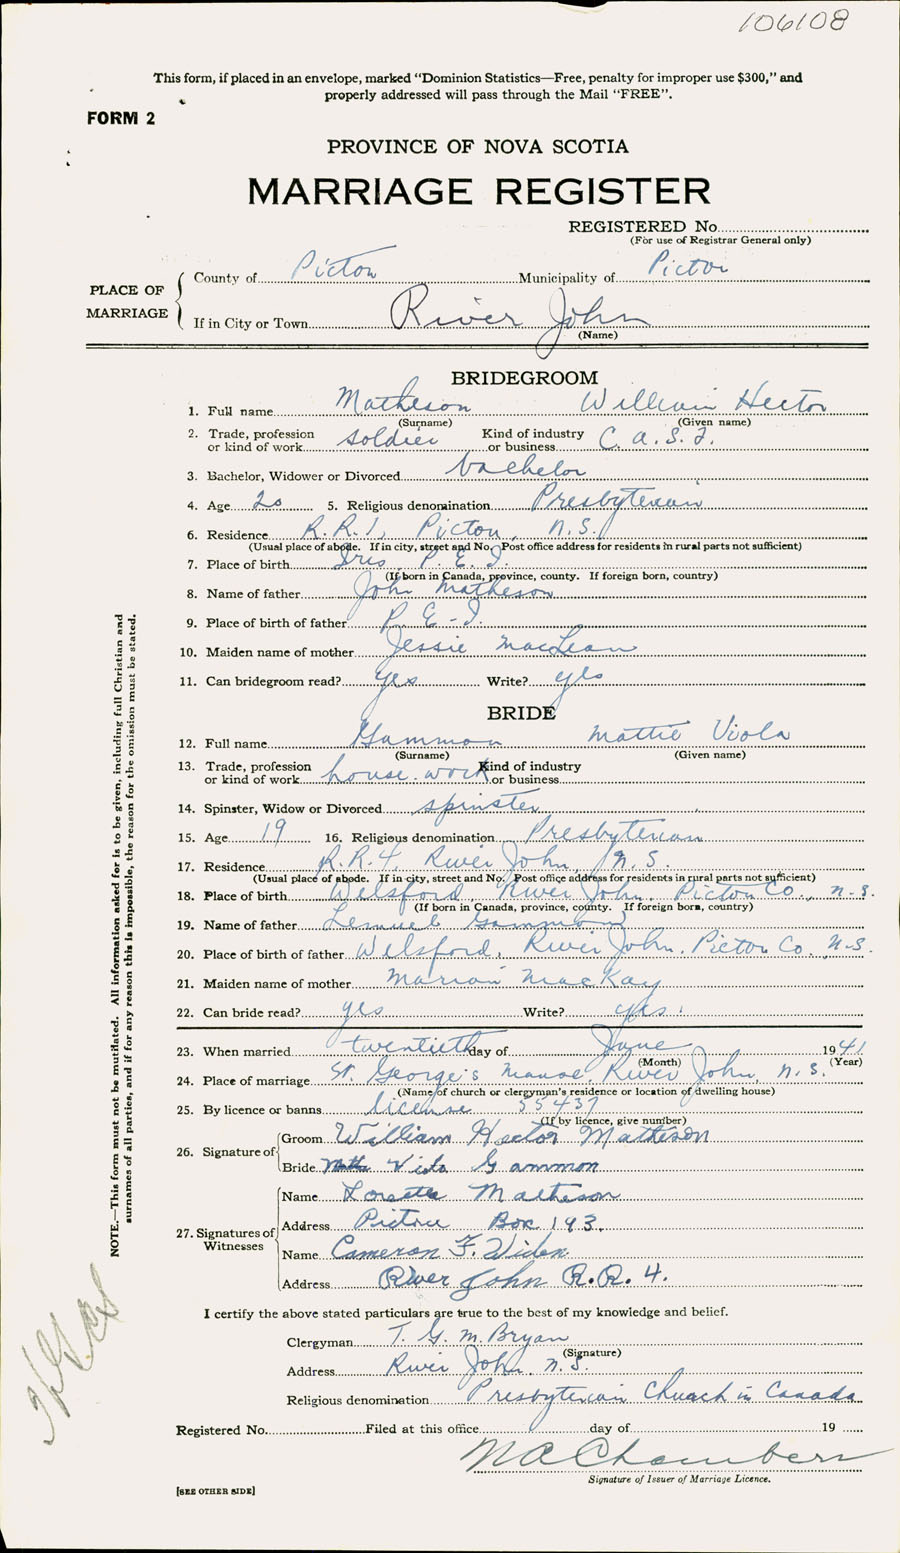 106108
This form, if placed in an envelope, marked "Dominion Statistics—Free, penalty for improper use $300," and
properly addressed will pass through the Mail "FREE".
FORM 2
PROVINCE OF NOVA SCOTIA
MARRIAGE REGISTER
REGISTERED No.
(For use of Registrar General only)
PLACE OF MARRIAGE
County of Pictou Municipality of Pictou
If in City or Town River John
(Name)
BRIDEGROOM
1. Full name Matheson William Hector
(Surname) (Given name)
2. Trade, profession or kind of work soldier Kind of industry or business C. A. S. F.
3. Bachelor, Widower or Divorced bachelor
4. Age 20 5. Religious denomination Presbyterian
6. Residence R.R.1, Pictou, N.S.
(Usual place of abode. If in city, street and No. Post office address for residents in rural parts not sufficient)
7. Place of birth Iris, P. E. I.
(If born in Canada, province, county. If foreign born, country)
8. Name of father John Matheson
9. Place of birth of father P. E. I.
10. Maiden name of mother Jessie MacLean
11. Can bridegroom read? yes Write? yes
BRIDE
12. Full name Gammon Mattie Viola
(Surname) (Given name)
13. Trade, profession or kind of work house work Kind of industry or business
14. Spinster, Widow or Divorced spinster
15. Age 19 16. Religious denomination Presbyterian
17. Residence R.R.4 River John, N.S.
(Usual place of abode. If in city, street and No. Post office address for residents in rural parts not sufficient)
18. Place of birth Welsford, River John, Pictou Co., N.S.
(If born in Canada, province, county. If foreign born, country)
19. Name of father Lemuel Gammon
20. Place of birth of father Welsford, River John, Pictou Co., N.S.
21. Maiden name of mother Marion MacKay
22. Can bride read? yes Write? yes.
23. When married twentieth day of June 1941
(Month) (Year)
24. Place of marriage St. George's Manse, River John, N.S.
(Name of church or clergyman's residence or location of dwelling house)
25. By licence or banns license 55437
(If by licence, give number)
26. Signature of Groom William Hector Matheson
Bride Viola Gammon
27. Signatures of Witnesses
Name Loretta Matheson
Address Pictou Box 193.
Name Cameron F.
Address River John R.R. 4.
I certify the above stated particulars are true to the best of my knowledge and belief.
Clergyman T. G. M. Bryan
(Signature)
Address River John, N.S.
Religious denomination Presbyterian Church in Canada
Registered No. Filed at this office day of 19
N A Chambers
Signature of Issuer of Marriage Licence.
[SEE OTHER SIDE]
NOTE.—This form must not be mutilated. All information asked for is to be given, including full Christian and
surnames of all parties, and if for any reason this is impossible, the reason for the omission must be stated.